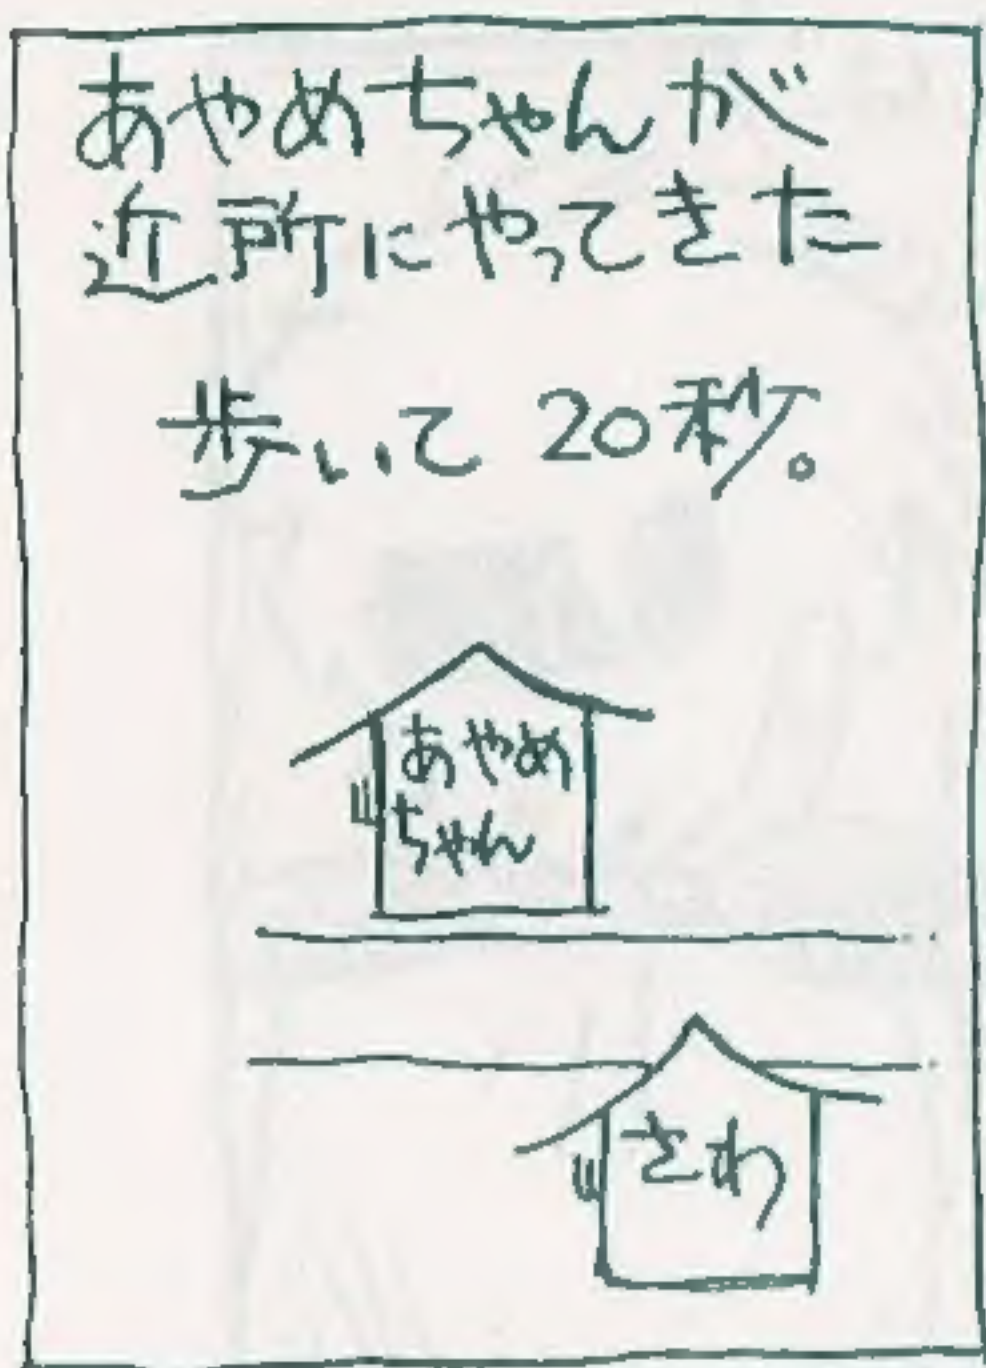 あやめちゃんが
近所にやってきた
歩いて20秒。
あやめ
ちゃん
さわ